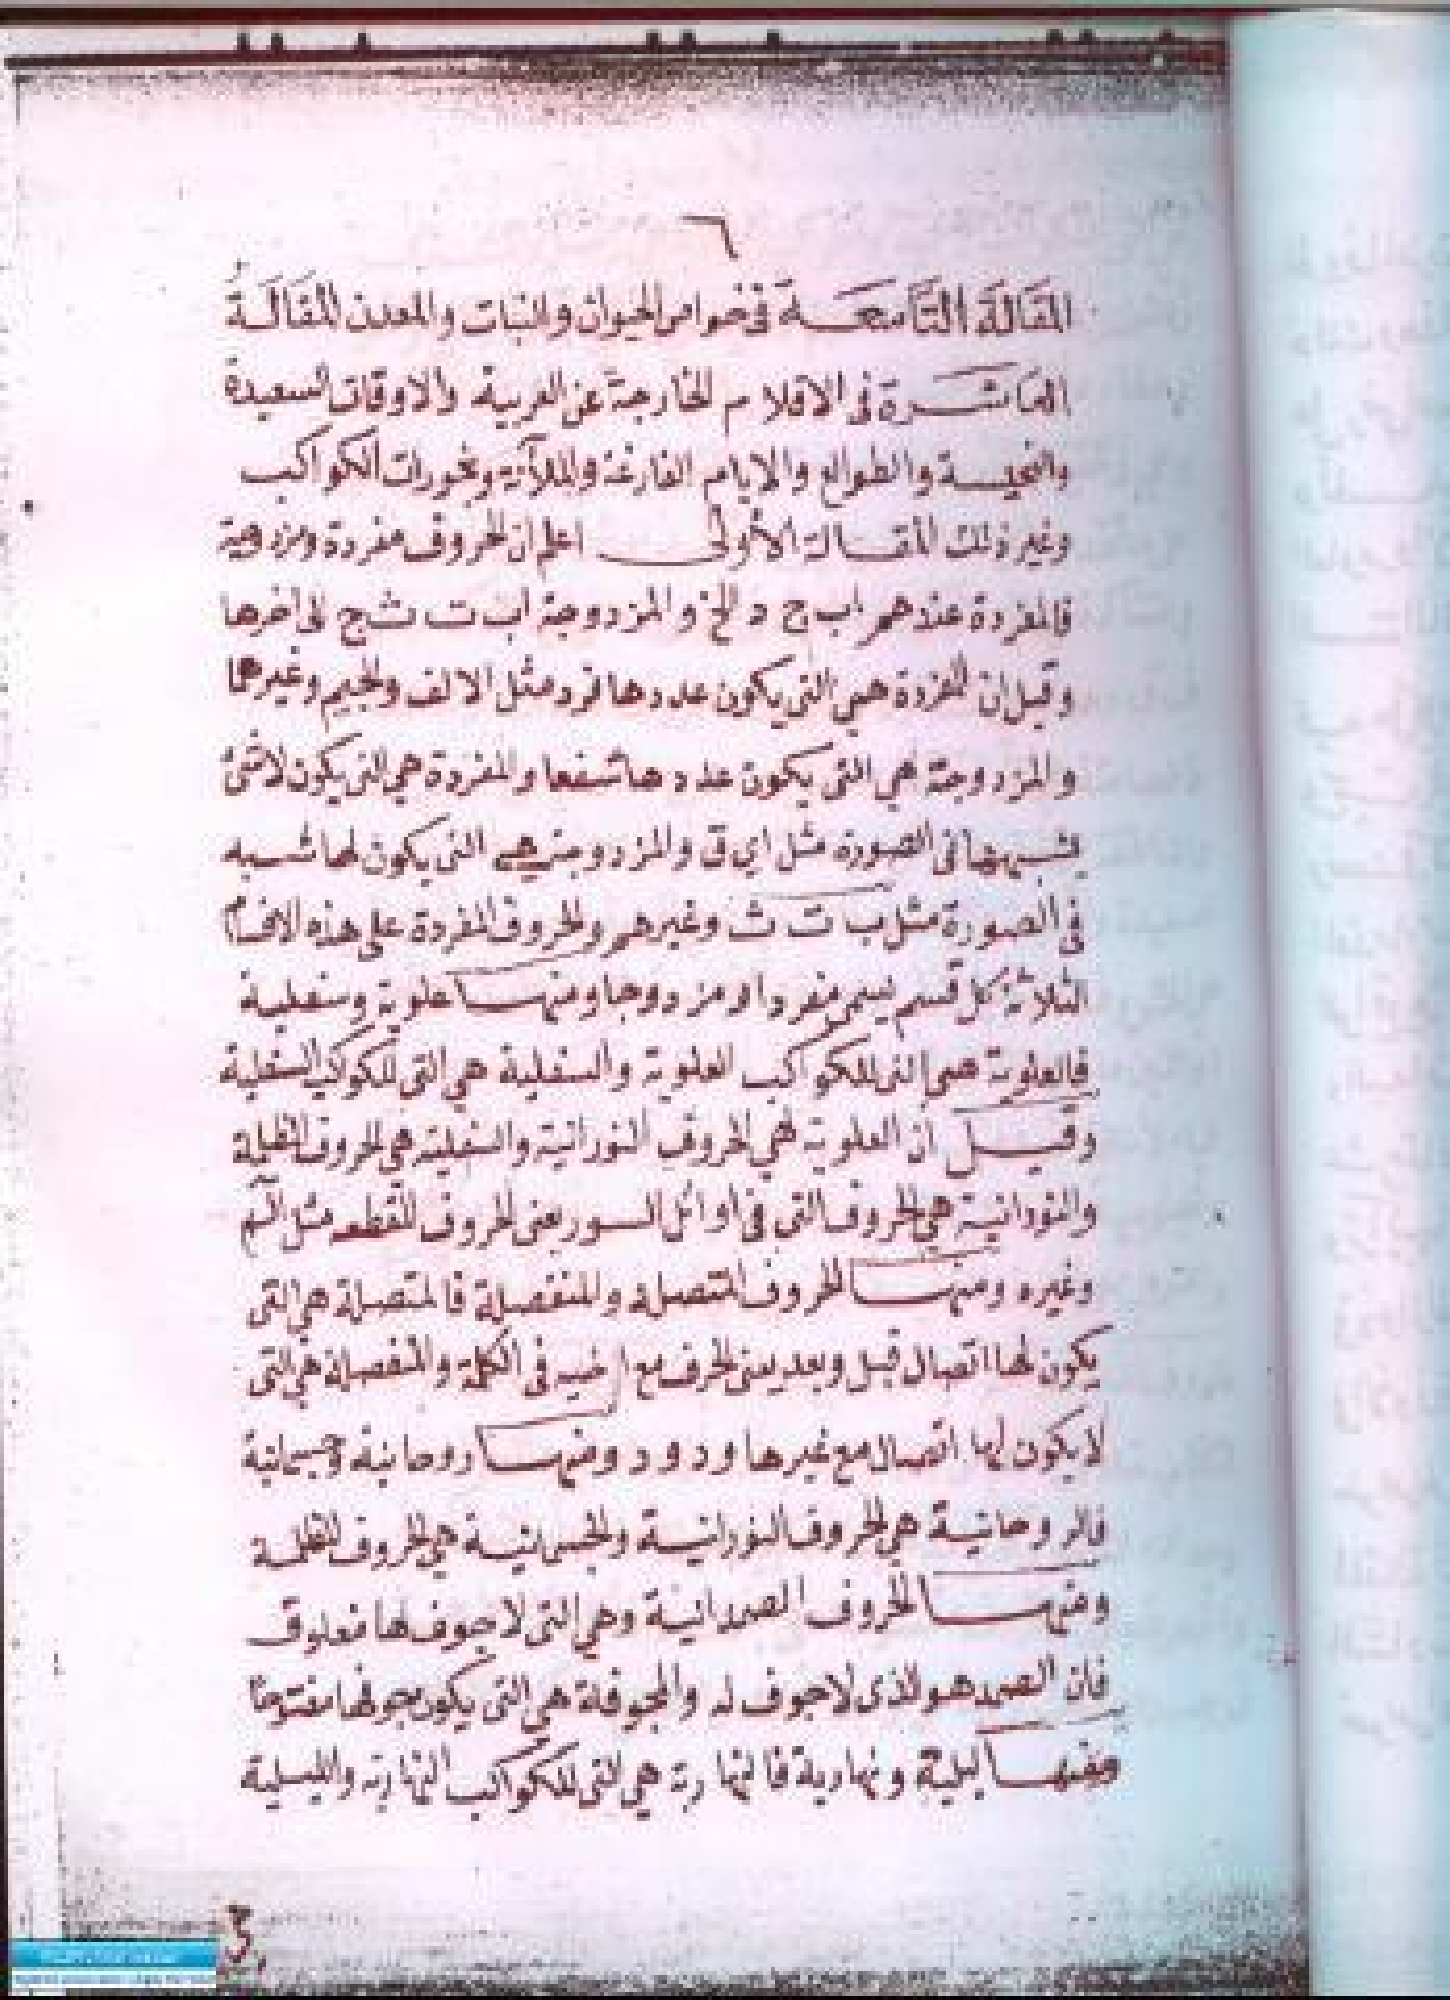 ٦
المقالة التاسعة في خواص الحيوان والنبات والمعدن المقالة
العاشرة في الاقلام الخارجة عن العربية والاوقات السعيدة
والنحيسة والطوالع والايام الفارغة والملآنة وبخورات الكواكب
وغير ذلك المقالة الأولى اعلم ان الحروف مفردة ومزدوجة
فالمفردة عندهم اب ج د الخ والمزدوجة اب ت ث ج الى اخرها
وقيل ان المفردة هي التي يكون عددها فرد مثل الالف والجيم وغيرهما
والمزدوجة هي التي يكون عددها شفعا والمفردة هي التي يكون لاشئ
يشبهها في الصورة مثل اي ق والمزدوجة هي التي يكون لها شبه
في الصورة مثل ب ت ث وغيرهم والحروف المفردة على هذه الاقسام
الثلاثة كل قسم يسمى مفردا او مزدوجا ومنها علوية وسفلية
فالعلوية هي التي للكواكب العلوية والسفلية هي التي للكواكب السفلية
وقيل ان العلوية هي الحروف النورانية والسفلية هي الحروف الظلمة
والنورانية هي الحروف التي في اوائل السور يعني الحروف المقطعه مثل الم
وغيره ومنها الحروف المتصلة والمنفصلة فالمتصلة هي التي
يكون لها اتصال قبل وبعد يعني الحرف مع اخيه في الكلمة والمنفصلة هي التي
لا يكون لها اتصال مع غيرها ود ود ومنها روحانية وجسمانية
فالروحانية هي الحروف النورانية والجسمانية هي الحروف الظلمة
ومنها الحروف الصمدانية وهي التي لا جوف لها مغلوق
فان الصمد هو الذي لا جوف له والمجوفة هي التي يكون جوفها مفتوحا
ومنها ليلية ونهارية فالنهارية هي التي للكواكب النهارية والليلية